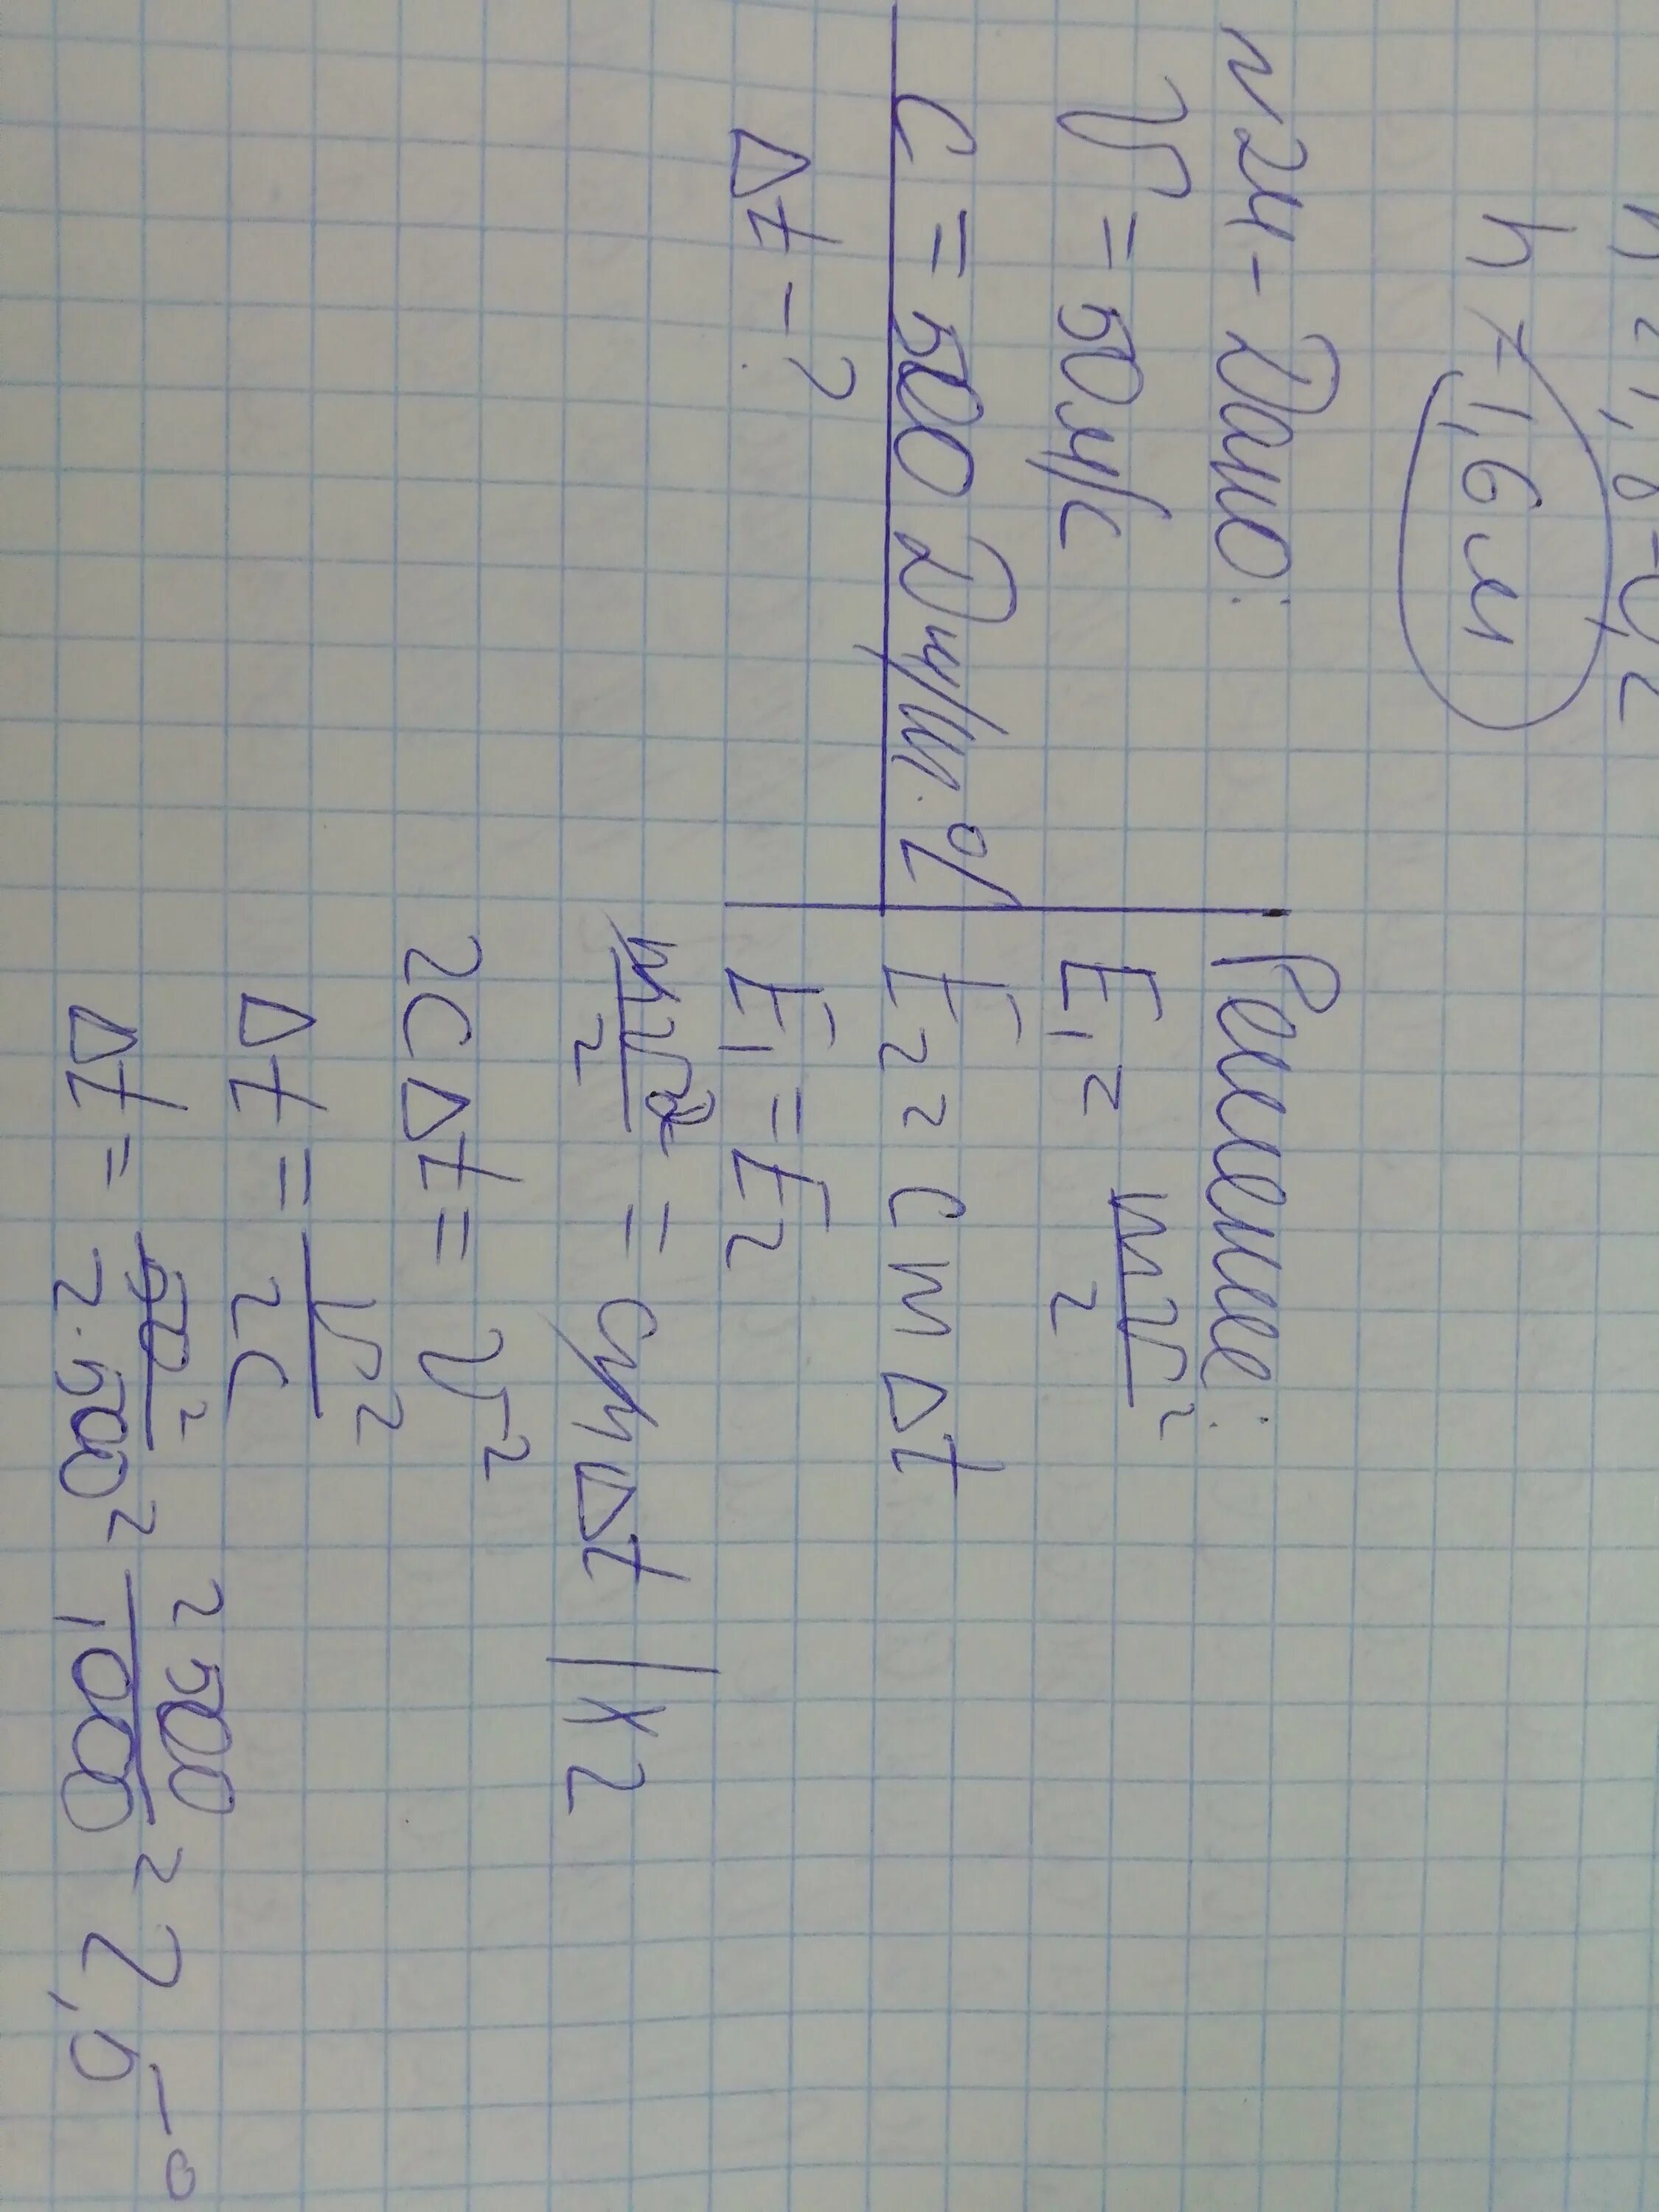 h = 1,6 м
N24- Дано:
V = 50 м/с
C = 500 Дж/кг·°C
Δt - ?
Решение:
E₁ = mV²/2
E₂ = cmΔt
E₁ = E₂
mV²/2 = cmΔt | x2
2cΔt = V²
Δt = V²/2c
Δt = 50²/2·500 = 2500/1000 = 2,5°